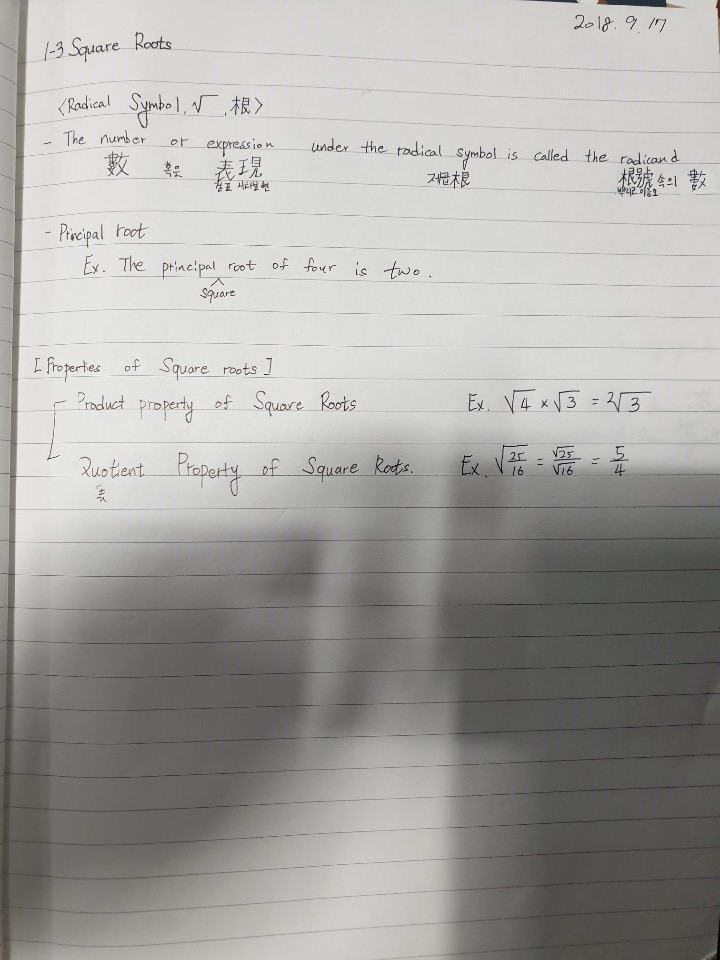 2018. 9. 17
1-3 Square Roots
<Radical Symbol, √ , 根>
- The number or expression under the radical symbol is called the radicand
數 혹은 表現 根 根號 속의 數
- Principal root
Ex. The principal root of four is two.
square
[Properties of Square roots]
Product property of Square Roots Ex. √4 × √3 = 2√3
Quotient Property of Square Roots. Ex. √25/16 = √25/√16 = 5/4